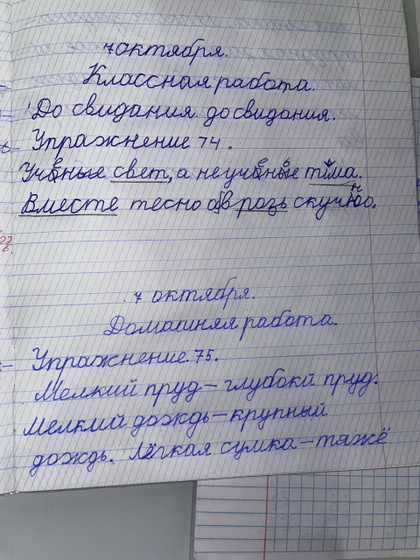 7 октября.
Классная работа.
До свидания. до свидания.
Упражнение 74.
свет, а не тьма.
Вместе тесно а врозь скучно.
7 октября.
Домашняя работа.
Упражнение. 75.
Мелкий пруд – глубокй пруд.
Мелкий дождь – крупный
дождь. Лёгкая сумка – тяжё